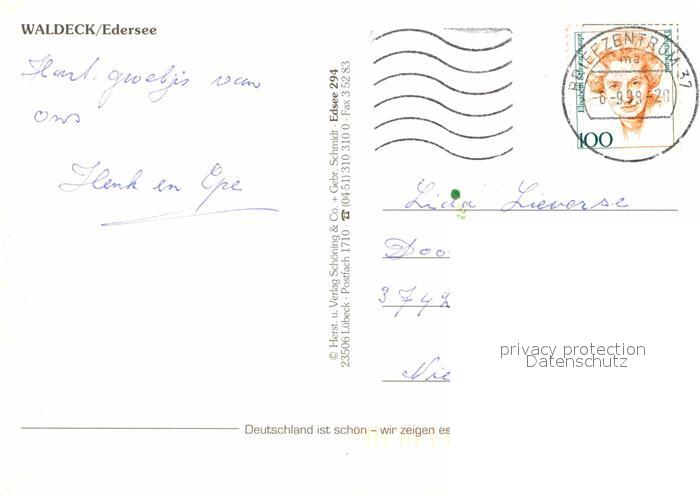 WALDECK/Edersee
Hart. groetjes van
ons
Henk en Epe
© Herst. u. Verlag Schöning & Co. + Gebr. Schmidt · Edsee 294
23506 Lübeck · Postfach 1710 · ☎ (04 51) 310 310 0 · Fax 3 52 83
BRIEFZENTRUM 37
ma
6-9.99-20
Elisabeth Schwarzhaupt
100
Lida Lieverse
Doo
3742
Nie
privacy protection
Datenschutz
Deutschland ist schön – wir zeigen es